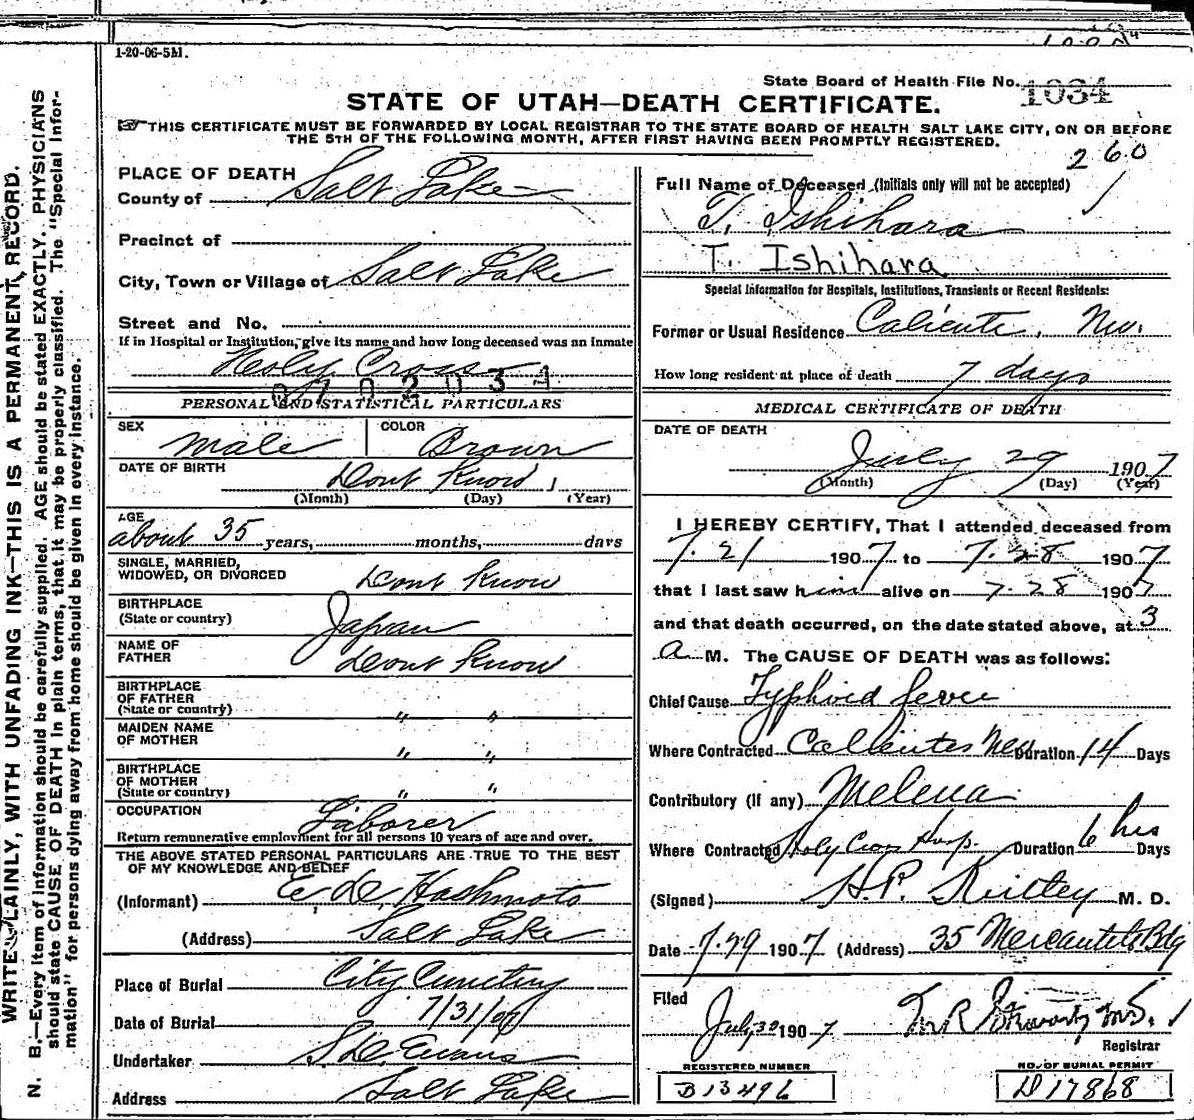 1-20-06-5M.
State Board of Health File No. 1034
STATE OF UTAH—DEATH CERTIFICATE.
THIS CERTIFICATE MUST BE FORWARDED BY LOCAL REGISTRAR TO THE STATE BOARD OF HEALTH SALT LAKE CITY, ON OR BEFORE
THE 5TH OF THE FOLLOWING MONTH, AFTER FIRST HAVING BEEN PROMPTLY REGISTERED.
260
WRITE PLAINLY, WITH UNFADING INK—THIS IS A PERMANENT RECORD.
N. B.—Every item of information should be carefully supplied. AGE should be stated EXACTLY. PHYSICIANS
should state CAUSE OF DEATH in plain terms, that it may be properly classified. The "Special Infor-
mation" for persons dying away from home should be given in every instance.
PLACE OF DEATH
County of Salt Lake
Precinct of
City, Town or Village of Salt Lake
Street and No.
If in Hospital or Institution, give its name and how long deceased was an inmate
Holy Cross
PERSONAL AND STATISTICAL PARTICULARS
SEX Male COLOR Brown
DATE OF BIRTH Dont Know
(Month) (Day) (Year)
AGE
about 35 years, months, days
SINGLE, MARRIED,
WIDOWED, OR DIVORCED Dont Know
BIRTHPLACE
(State or country) Japan
NAME OF
FATHER Dont Know
BIRTHPLACE
OF FATHER
(State or country) " "
MAIDEN NAME
OF MOTHER " "
BIRTHPLACE
OF MOTHER
(State or country) " "
OCCUPATION Laborer
Return remunerative employment for all persons 10 years of age and over.
THE ABOVE STATED PERSONAL PARTICULARS ARE TRUE TO THE BEST
OF MY KNOWLEDGE AND BELIEF
(Informant) E. D. Hashmoto
(Address) Salt Lake
Place of Burial City Cemetery
Date of Burial 7/31/07
Undertaker S. D. Evans
Address Salt Lake
Full Name of Deceased (Initials only will not be accepted)
T. Ishihara
T. Ishihara
Special Information for Hospitals, Institutions, Transients or Recent Residents:
Former or Usual Residence Caliente, Nev.
How long resident at place of death 7 days
MEDICAL CERTIFICATE OF DEATH
DATE OF DEATH
July 29 1907
(Month) (Day) (Year)
I HEREBY CERTIFY, That I attended deceased from
7. 21 1907 to 7. 28 1907
that I last saw him alive on 7. 28 1907
and that death occurred, on the date stated above, at 3
a M. The CAUSE OF DEATH was as follows:
Chief Cause Typhoid fever
Where Contracted Callientes Nev Duration 14 Days
Contributory (if any) Melena
Where Contracted Holy Cross Hosp. Duration 6 hrs Days
(Signed) H. P. M. D.
Date 7.29 1907 (Address) 35 Mercantile Bldg
Filed
July 30 1907 M R Stewart M.D.
Registrar
REGISTERED NUMBER
B13496
NO. OF BURIAL PERMIT
D17868